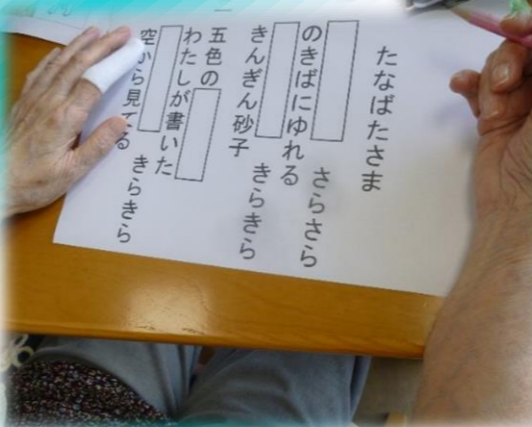 たなばたさま
さらさら
のきばにゆれる
きらきら
きんぎん砂子
五色の
わたしが書いた
きらきら
空から見てる